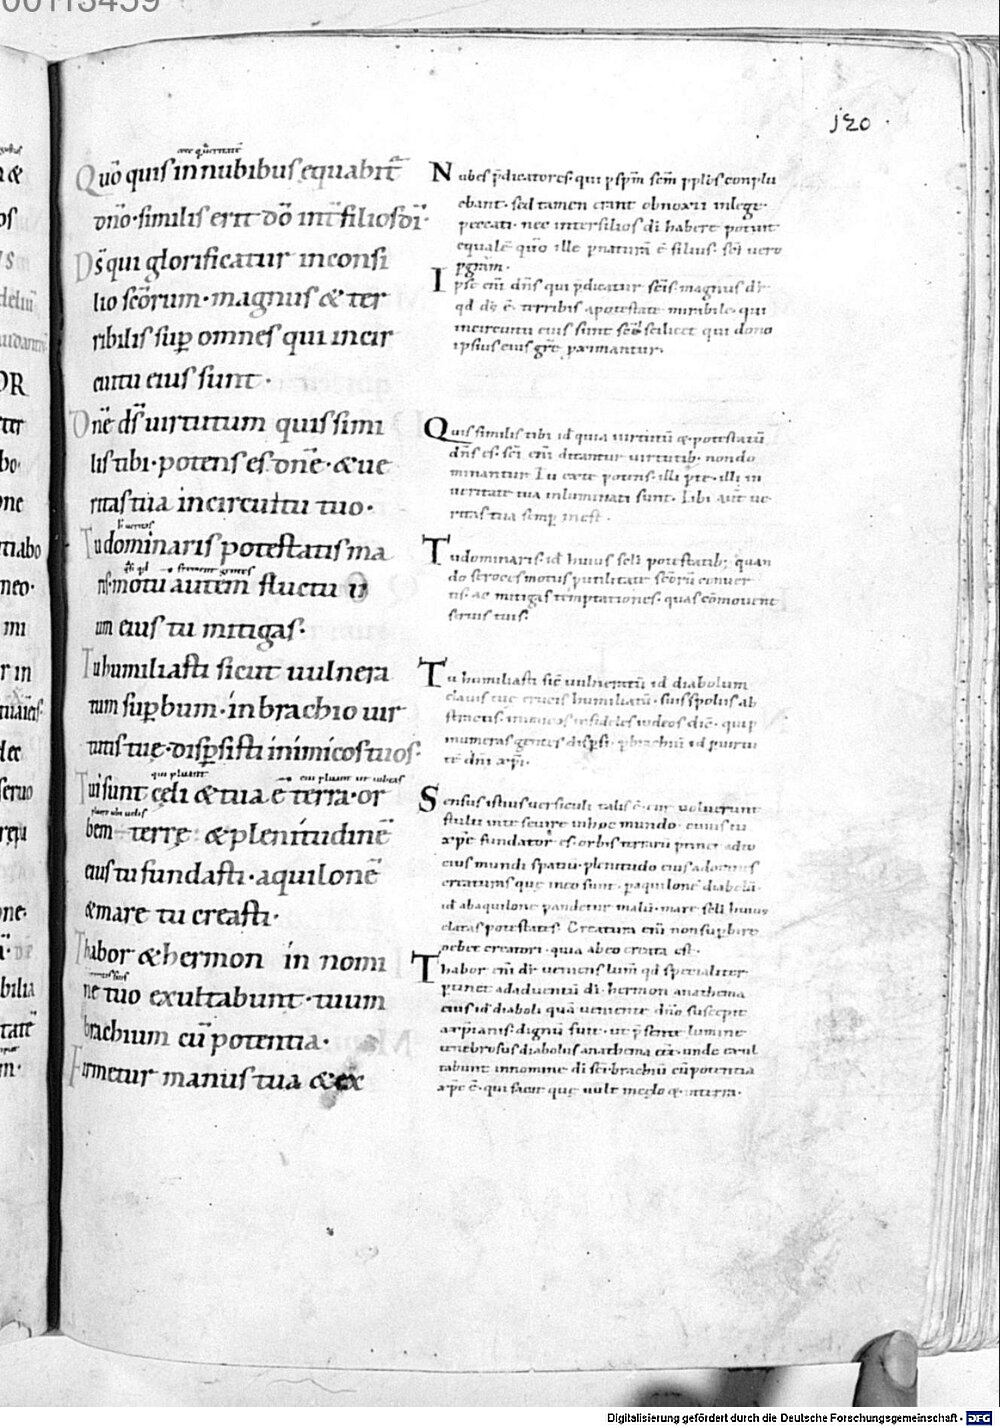 00113459
120
Quō quis in nubibus equabit̄
dn̄o · similis erit dō int̄ filios dī ·
Ds̄ qui glorificatur in consi
lio scōrum · magnus & ter
ribilis suꝑ omnes qui in cir
cuitu eius sunt ·
Dn̄e ds̄ uirtutum quis simi
lis tibi · potens es dn̄e · & ue
ritas tua in circuitu tuo ·
Tu dominaris potestatis ma
ris · motu autem fluctu u
um eius tu mitigas ·
Tu humiliasti sicut uulnera
tum suꝑbum · in brachio uir
tutis tuę · disꝑsisti inimicos tuos ·
Tui sunt cęli & tua ē terra · or
bem terrę & plenitudinē
eius tu fundasti · aquilonē
& mare tu creasti ·
Thabor & hermon in nomi
ne tuo exultabunt · tuum
brachium cū potentia ·
Firmetur manus tua & ex
Nubes p̄dicatores · qui
ebant · sed tamen erant obnoxii in lege
peccati · nec inter filios dī habere potuit
equalē quō ille ꝑ naturā ē filius · sc̄i uero
ꝑ grām ·
Ipse enī dn̄s qui p̄dicatur sc̄is magnus dr̄
qd ds̄ ē · terribis a potestate mirabile · qui
in circuitu eius sunt scilicet qui dono
ipsius eius
Quis similis tibi id quia uirtutū & potestatū
dn̄s es · sc̄i enī dicantur uirtutib · non do
minantur Tu ex te potens · illi illi in
ueritate tua inluminati sunt · Tibi aut̄ ue
ritas tua semꝑ inest ·
Tu dominaris · id huius sc̄li potestatib; quan
do feroces motus ꝑ utilitate scōrū conuer
tis · ac mitigas temptationes · quas cōmouent
seruis tuis ·
Tu humiliasti sic̄ uulneratū id diabolum
clauis tuę crucis humiliatū · suis spoliis ab
inimicos infideles iudeos
numeras gentes disꝑsi · ꝑ brachiū id uirtu
tē dn̄i xp̄i ·
Sensus istius uersiculi talis ē · cur uoluerunt
stulti in te seuire in hoc mundo · cuius tu
xp̄e fundator es · orbis terrarū
eius mundi spatiū · plenitudo eius
creaturas quę in eo sunt · ꝑ aquilonē diabolū ·
id ab aquilone pandetur malū · mare sc̄li huius
elatas potestates · Creatura enī non suꝑbire
debet creatori · quia ab eo creata est ·
Thabor enī dr̄ ueniens lum̄ qd specialiter
ad aduentū dī · hermon anathema
eius id diaboli quā ueniente dn̄o suscepit
a xp̄ianis · dignū fuit · ut p̄sente lumine
tenebrosus diabolus anathema eēt · unde exul
tabunt in nomine dī sc̄i · brachiū cū potentia
xp̄c ē · qui facit quę uult in cęlo & in terra ·
Digitalisierung gefördert durch die Deutsche Forschungsgemeinschaft - DFG